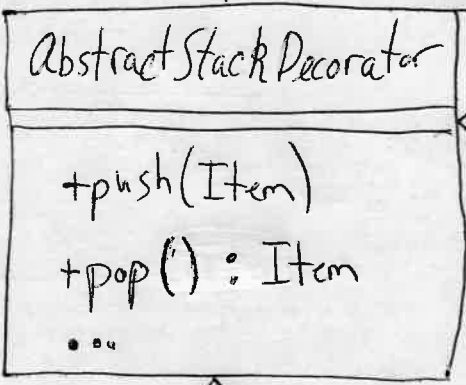 AbstractStackDecorator
+push(Item)
+pop() : Item
...